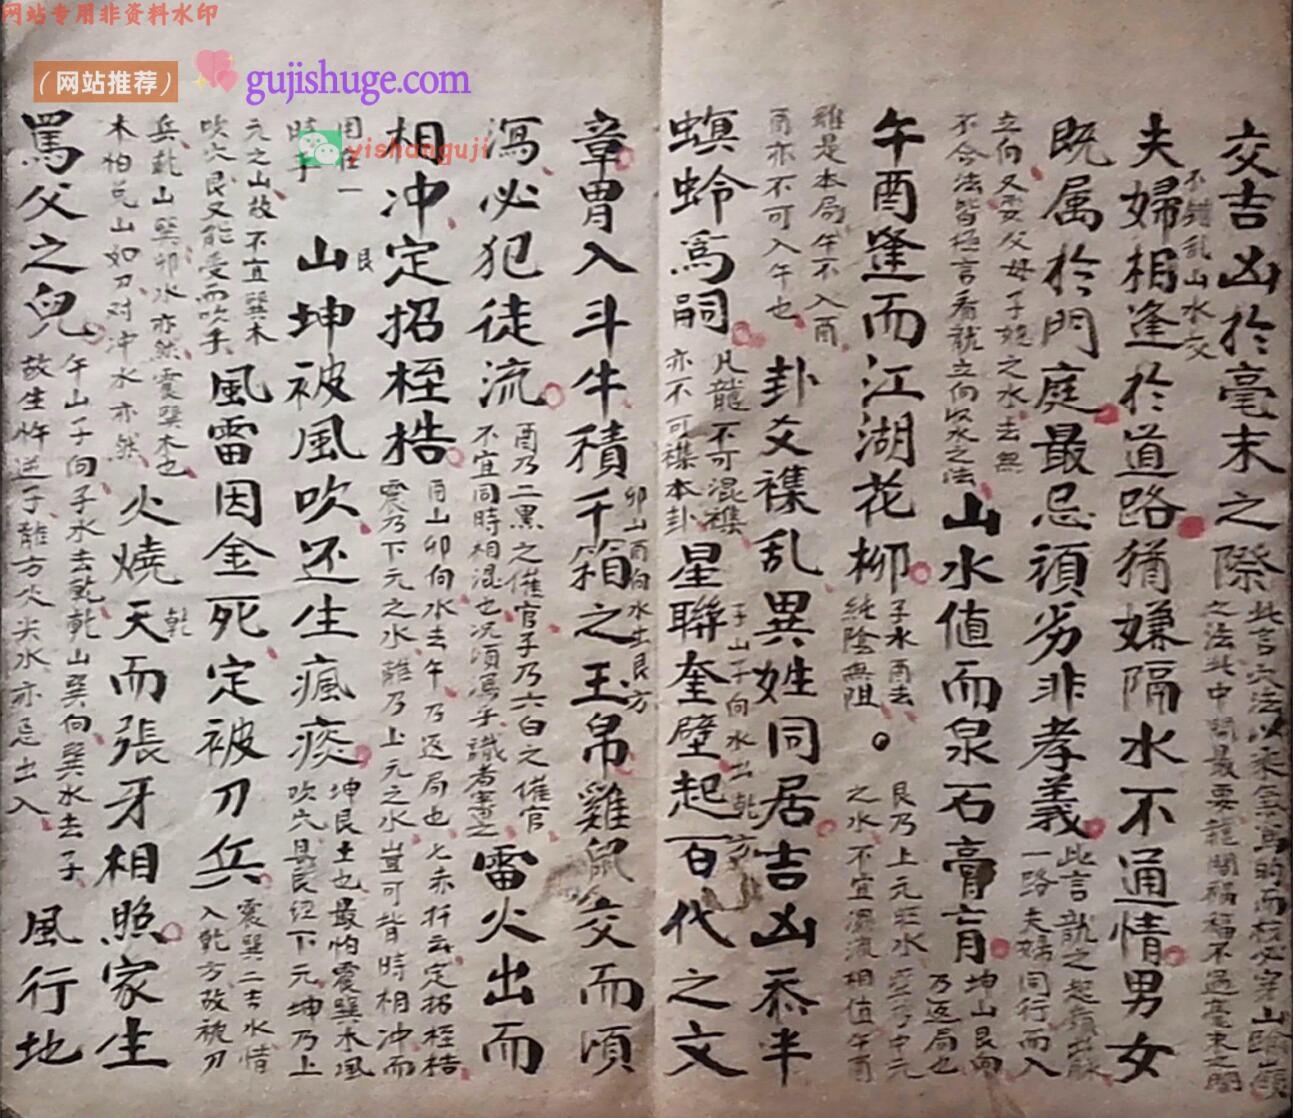 网站专用非资料水印
（网站推荐）
gujishuge.com
yishanguji
交吉凶於毫末之際
此言穴法以乘氣爲的而
之法此中間最要龍関禍福不過毫末之間
夫婦相逢於道路猶嫌隔水不通情男女
不錯乱山水交
既属於門庭最忌頑劣非孝義
此言龍之起
一路夫婦同行而入
立向又要父母子
之水去無
不合法皆極言看龍立向以水之法
山水值而泉石膏肓
坤山艮向
乃返局也
午酉逢而江湖花柳
子水酉去
純陰無阻。
艮乃上元旺水
中元
之水不宜混流相值午酉
雖是本局午不入酉
酉亦不可入午也
卦爻襍乱異姓同居吉凶忝半
螟蛉爲嗣
凡龍不可混襍
亦不可襍本卦
星聯奎壁起百代之文
子山子向水出乾方
章胃入斗牛積千箱之王帛雞鼠交而頃
卯山酉向水出艮方
瀉必犯徒流
酉乃二黒之催官子乃六白之催官
不宜同時相混也况頃瀉乎識者塞之
雷火出而
相冲定招桎梏
酉山卯向水去午乃返局也七赤
云定招桎梏
震乃下元之水離乃上元之水豈可皆時相冲而
用在一
時乎
山坤被風吹还生瘋痰
艮
坤艮土也最怕震巽木風
吹穴具艮纪下元坤乃上
元之山故不宜巽木
吹穴艮又能受而吹乎
風雷因金死定被刀兵
震巽二吉水惜
入乾方故被刀
兵乾山巽卯水亦然震巽木也
木怕兑山如刀对冲水亦然
火燒天而張牙相照家生
乾
罵父之兒
午山子向子水去乾乾山巽向巽水去子
故生忤逆子離方火尖水亦忌出入
風行地